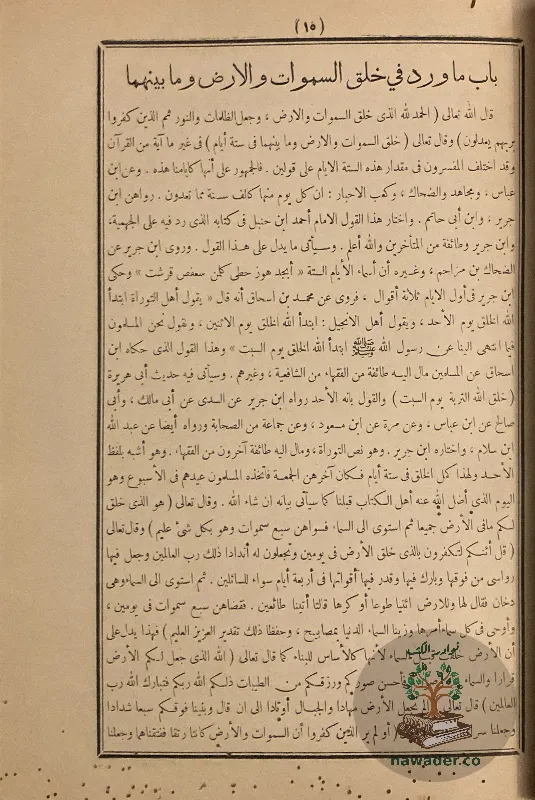 (١٥)
باب ماورد في خلق السموات والارض وما بينهما
قال الله تعالى ( الحمد لله الذى خلق السموات والارض ، وجعل الظلمات والنور ثم الذين كفروا
بربهم يعدلون ) وقال تعالى ( خلق السموات والارض وما بينهما فى ستة أيام ) فى غير ما آية من القرآن
وقد اختلف المفسرون فى مقدار هذه الستة الايام على قولين . فالجمهور على أنها كايامنا هذه . وعن ابن
عباس ، ومجاهد والضحاك ، وكعب الاحبار : ان كل يوم منها كالف سنة مما تعدون . رواهن ابن
جرير ، وابن أبى حاتم . واختار هذا القول الامام أحمد ابن حنبل فى كتابه الذى رد فيه على الجهمية،
وابن جرير وطائفة من المتأخرين والله أعلم . وسيأتى ما يدل على هذا القول . وروى ابن جرير عن
الضحاك بن مزاحم ، وغيره أن أسماء الأيام الستة « أبجد هوز حطى كلمن سعفص قرشت » وحكى
ابن جرير فى أول الايام ثلاثة أقوال ، فروى عن محمد بن اسحاق أنه قال « يقول أهل التوراة ابتدأ
الله الخلق يوم الأحد ، ويقول أهل الانجيل : ابتدأ الله الخلق يوم الاثنين ، ونقول نحن المسلمون
فيما انتهى الينا عن رسول الله ﷺ ابتدأ الله الخلق يوم السبت » وهذا القول الذى حكاه ابن
اسحاق عن المسلمين مال اليه طائفة من الفقهاء من الشافعية ، وغيرهم . وسيأتى فيه حديث أبى هريرة
( خلق الله التربة يوم السبت ) والقول بانه الأحد رواه ابن جرير عن السدى عن أبى مالك ، وأبى
صالح عن ابن عباس ، وعن مرة عن ابن مسعود ، وعن جماعة من الصحابة ورواه أيضا عن عبد الله
ابن سلام ، واختاره ابن جرير . وهو نص التوراة ، ومال اليه طائفة آخرون من الفقهاء . وهو أشبه بلفظ
الأحد ولهذا كمل الخلق فى ستة أيام فكان آخرهن الجمعة فاتخذه المسلمون عيدهم فى الأسبوع وهو
اليوم الذى أضل الله عنه أهل الكتاب قبلنا كما سيأتى بيانه ان شاء الله . وقال تعالى ( هو الذى خلق
لكم مافى الأرض جميعا ثم استوى الى السماء فسواهن سبع سموات وهو بكل شئ عليم ) وقال تعالى
( قل أئنكم لتكفرون بالذى خلق الأرض فى يومين وتجعلون له أندادا ذلك رب العالمين وجعل فيها
رواسى من فوقها وبارك فيها وقدر فيها أقواتها فى أربعة أيام سواء للسائلين . ثم استوى الى السماء وهى
دخان فقال لها وللارض ائتيا طوعا أو كرها قالتا أتينا طائعين . فقضاهن سبع سموات فى يومين ،
وأوحى فى كل سماء أمرها وزينا السماء الدنيا بمصابيح ، وحفظا ذلك تقدير العزيز العليم ) فهذا يدل على
أن الأرض خلقت قبل السماء لأنها كالأساس للبناء كما قال تعالى ( الله الذى جعل لكم الأرض
قرارا والسماء فأحسن صوركم ورزقكم من الطيبات ذلكم الله ربكم فتبارك الله رب
العالمين ) قال تعالى نجعل الأرض مهادا والجبال أوتادا الى ان قال وبنينا فوقكم سبعا شدادا
وجعلنا سر أو لم ير الذين كفروا أن السموات والأرض كانتا رتقا ففتقناهما وجعلنا
نوادر الكتب
nawader.co